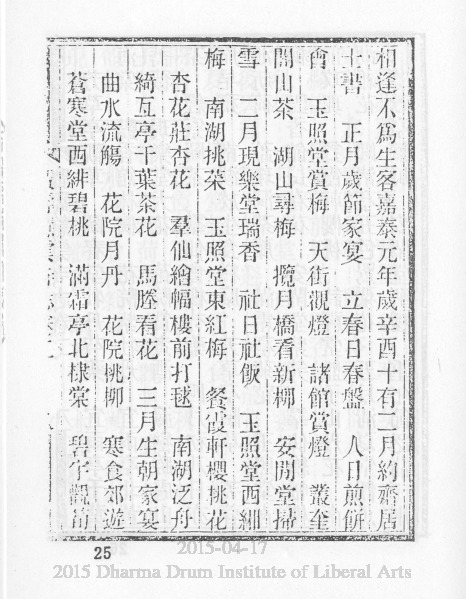 相逢不爲生客嘉泰元年歲辛酉十有二月約齋居
士書　正月歲節家宴　立春日春盤　人日煎餠
會　玉照堂賞梅　天街觀燈　諸館賞燈　叢奎
閣山茶　湖山尋梅　攬月橋看新柳　安閒堂掃
雪　二月現樂堂瑞香　社日社飯　玉照堂西緗
梅　南湖挑菜　玉照堂東紅梅　餐霞軒櫻桃花
杏花莊杏花　羣仙繪幅樓前打毬　南湖泛舟
綺互亭千葉茶花　馬塍看花　三月生朝家宴
曲水流觴　花院月丹　花院桃柳　寒食郊遊
蒼寒堂西緋碧桃　滿霜亭北棣棠　碧宇觀筍
25
2015-04-17
2015 Dharma Drum Institute of Liberal Arts